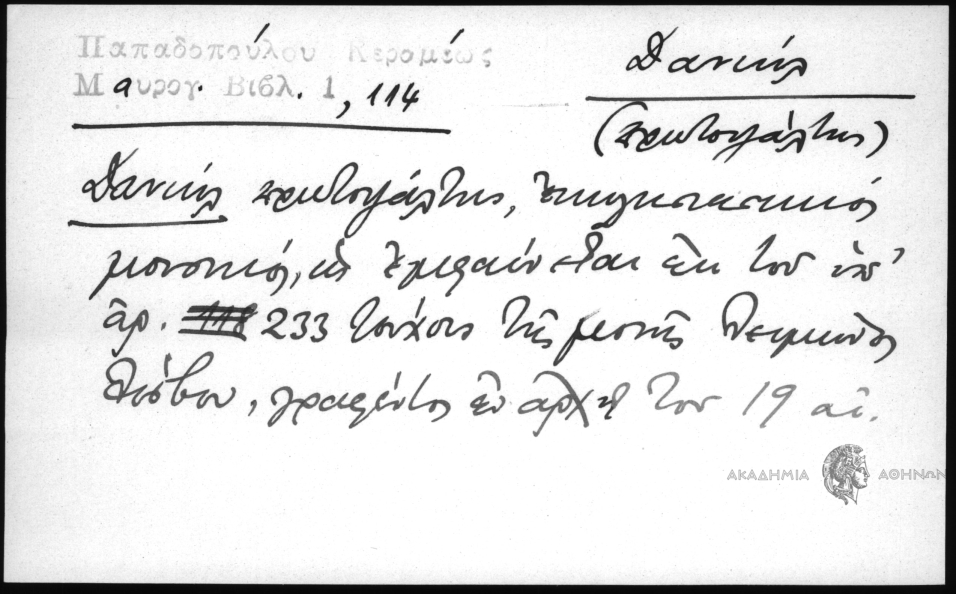 Παπαδοπούλου Κεραμέως
Μαυρογ. Βιβλ. 1, 114
Δανιήλ
(πρωτοψάλτης)
Δανιήλ πρωτοψάλτης, ἐκκλησιαστικός
μουσικός, ὡς ἐμφαίνεται ἐκ τοῦ ὑπ'
ἀρ. 233 τεύχους τῆς μονῆς Λειμῶνος
Λέσβου, γραφέντος ἐν ἀρχῇ τοῦ 19 αἰ.
ΑΚΑΔΗΜΙΑ ΑΘΗΝΩΝ